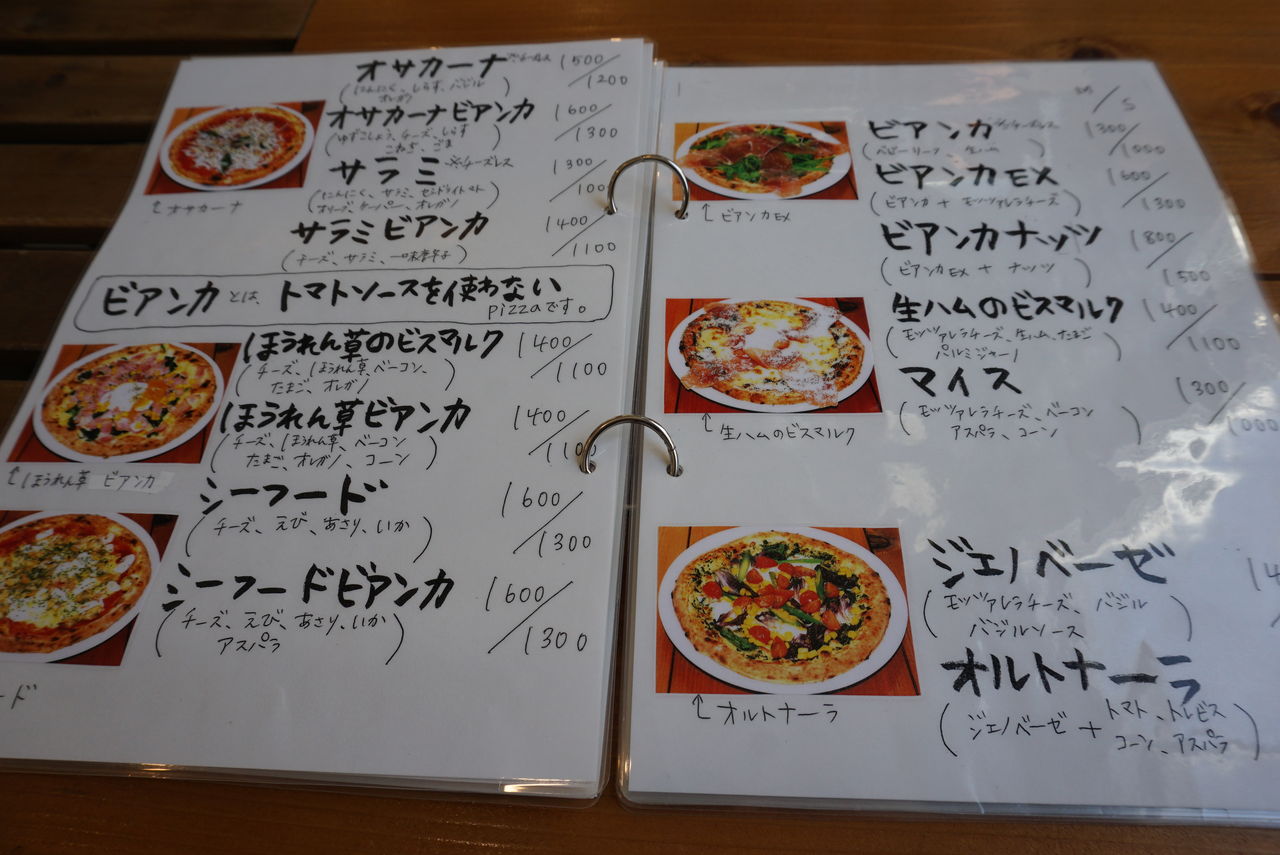 オサカーナ ※チーズレス 1500/1200
(にんにく、しらす、バジル
オレガノ)
オサカーナビアンカ 1600/1300
(ゆずこしょう、チーズ、しらす
こねぎ、ごま)
↑オサカーナ
サラミ ※チーズレス 1300/100
(にんにく、サラミ、セミドライトマト
オリーブ、ケーパー、オレガノ)
サラミビアンカ 1400/1100
(チーズ、サラミ、一味唐辛子)
ビアンカとは、トマトソースを使わない
pizzaです。
ほうれん草のビスマルク 1400/1100
(チーズ、ほうれん草、ベーコン、
たまご、オレガノ)
ほうれん草ビアンカ 1400/110
(チーズ、ほうれん草、ベーコン
たまご、オレガノ、コーン)
↑ほうれん草 ビアンカ
シーフード 1600/1300
(チーズ、えび、あさり、いか)
シーフードビアンカ 1600/1300
(チーズ、えび、あさり、いか
アスパラ)
ード
M/S
ビアンカ ※チーズレス 1300/1000
(ベビーリーフ 生ハム)
ビアンカEX 1600/1300
(ビアンカ+モッツァレラチーズ)
↑ビアンカEX
ビアンカナッツ 1800/1500
(ビアンカEX+ナッツ)
生ハムのビスマルク 1400/1100
(モッツァレラチーズ、生ハム、たまご
パルミジャーノ)
マイス 1300/1000
(モッツァレラチーズ、ベーコン
アスパラ、コーン)
↑生ハムのビスマルク
ジェノベーゼ 14
(モッツァレラチーズ、バジル
バジルソース)
オルトナーラ
(ジェノベーゼ+トマト、トレビス
コーン、アスパラ)
↑オルトナーラ